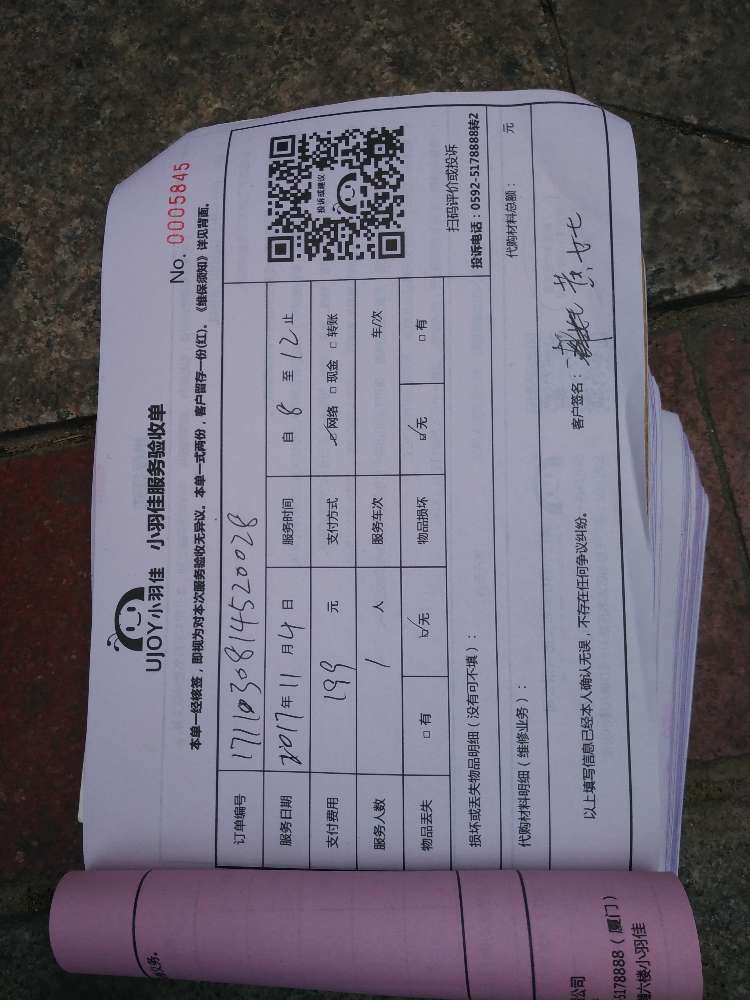 UJOY小羽佳 小羽佳服务验收单
No. 0005845
本单一经核签，即视为对本次服务验收无异议。本单一式两份，客户留存一份(红)。《维保须知》详见背面。
订单编号 1711030814520028
服务日期 2017年11月4日 服务时间 自8至12止
支付费用 199元 支付方式 ☑网络 □现金 □转账
服务人数 1人 服务车次 车/次
物品丢失 □有 ☑无 物品损坏 ☑无 □有
投诉或建议
扫码评价或投诉
投诉电话：0592-5178888转2
损坏或丢失物品明细（没有可不填）：
代购材料明细（维修业务）： 代购材料总额： 元
以上填写信息已经本人确认无误，不存在任何争议纠纷。 客户签名：
义务。
公司
5178888（厦门）
六楼小羽佳